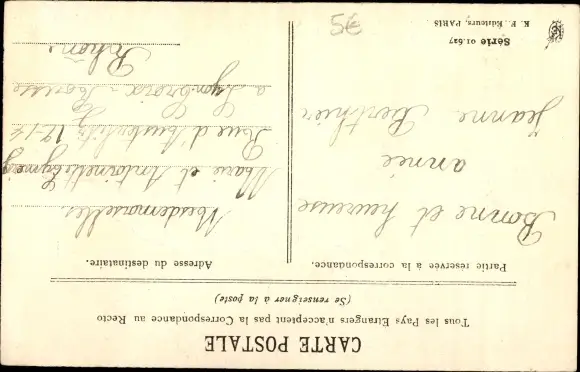 CARTE POSTALE
Tous les Pays Etrangers n'acceptent pas la Correspondance au Recto
(Se renseigner à la poste)
Partie réservée à la correspondance.
Bonne et heureuse
année
Jeanne Berthier
Adresse du destinataire.
Mesdemoiselles
Marie et Antoinette
Rue d'Austerlitz 17-14
a Lyon Croix-Rousse
Rhône
Série 01.627
K. F. Éditeurs, PARIS
5€